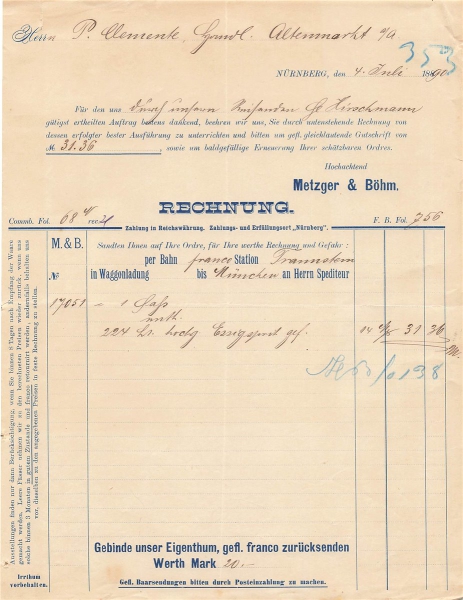 Herrn P. Clemente, Handl. Altenmarkt a/A
353
NÜRNBERG, den 4. Juli 1890
Für den uns durch unseren Reisenden H. Hirschmann
gütigst ertheilten Auftrag bestens dankend, beehren wir uns, Sie durch untenstehende Rechnung von
dessen erfolgter bester Ausführung zu unterrichten und bitten um gefl. gleichlautende Gutschrift von
M. 31.36, sowie um baldgefällige Erneuerung Ihrer schätzbaren Ordres.
Hochachtend
Metzger & Böhm.
RECHNUNG.
Commb. Fol. 68
F. B. Fol. 756
Zahlung in Reichswährung. Zahlungs- und Erfüllungsort „Nürnberg".
M. & B.
№
Sandten Ihnen auf Ihre Ordre, für Ihre werthe Rechnung und Gefahr:
per Bahn franco Station Traunstein
in Waggonladung bis München an Herrn Spediteur
17051 1 Fass
224 Essigsprit gef. 14 31 36
Gebinde unser Eigenthum, gefl. franco zurücksenden
Werth Mark 20.—
Gefl. Baarsendungen bitten durch Posteinzahlung zu machen.
Ausstellungen finden nur dann Berücksichtigung, wenn Sie binnen 8 Tagen nach Empfang der Waare
gemacht werden. Leere Fässer nehmen wir zu den berechneten Preisen wieder zurück, wenn uns
solche binnen 3 Monaten in gutem Zustande und franco retournirt werden, andernfalls behalten uns
vor, dieselben zu den angegebenen Preisen in feste Rechnung zu stellen.
Irrthum
vorbehalten.